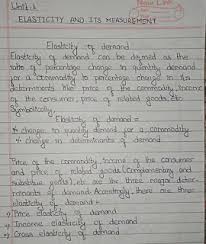 Unit-A
ELASTICITY AND ITS MEASUREMENT
Elasticity of demand
Elasticity of demand can be defined as the
ratio of percentage change in quantity demand
for a commodity to percentage change in its
determinants like price of the commodity, income
of the consumer, price of related goods, etc.
Symbolically,
Elasticity of demand =
% change in quantity demand for a commodity
% change in determinants of demand
Price of the commodity, income of the consumer
and price of related goods (complementary and
substitute goods), etc are the three major deter-
minants of demand. Accordingly, there are three
elasticity of demand :
Price elasticity of demand
Income elasticity of demand
Cross elasticity of demand